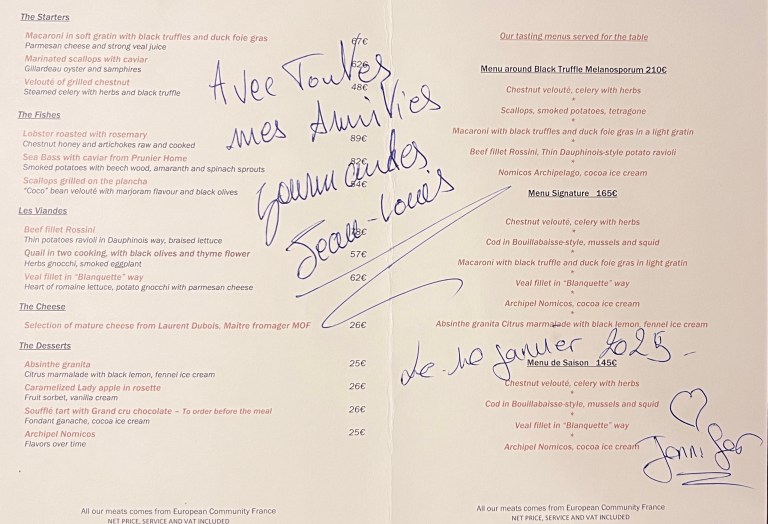 The Starters
Macaroni in soft gratin with black truffles and duck foie gras 67€
Parmesan cheese and strong veal juice
Marinated scallops with caviar 62€
Gillardeau oyster and samphires
Velouté of grilled chestnut 48€
Steamed celery with herbs and black truffle
The Fishes
Lobster roasted with rosemary 89€
Chestnut honey and artichokes raw and cooked
Sea Bass with caviar from Prunier Home 82€
Smoked potatoes with beech wood, amaranth and spinach sprouts
Scallops grilled on the plancha
“Coco” bean velouté with marjoram flavour and black olives
Les Viandes
Beef fillet Rossini
Thin potatoes ravioli in Dauphinois way, braised lettuce
Quail in two cooking, with black olives and thyme flower 57€
Herbs gnocchi, smoked eggplant
Veal fillet in “Blanquette” way 62€
Heart of romaine lettuce, potato gnocchi with parmesan cheese
The Cheese
Selection of mature cheese from Laurent Dubois, Maître fromager MOF 26€
The Desserts
Absinthe granita 25€
Citrus marmalade with black lemon, fennel ice cream
Caramelized Lady apple in rosette 26€
Fruit sorbet, vanilla cream
Soufflé tart with Grand cru chocolate – To order before the meal 26€
Fondant ganache, cocoa ice cream
Archipel Nomicos 25€
Flavors over time
All our meats comes from European Community France
NET PRICE, SERVICE AND VAT INCLUDED
Avec Toutes
mes Amitiés
gourmandes
Jean-Louis
Our tasting menus served for the table
Menu around Black Truffle Melanosporum 210€
Chestnut velouté, celery with herbs
*
Scallops, smoked potatoes, tetragone
*
Macaroni with black truffles and duck foie gras in a light gratin
*
Beef fillet Rossini, Thin Dauphinois-style potato ravioli
*
Nomicos Archipelago, cocoa ice cream
Menu Signature 165€
Chestnut velouté, celery with herbs
*
Cod in Bouillabaisse-style, mussels and squid
*
Macaroni with black truffle and duck foie gras in light gratin
*
Veal fillet in “Blanquette” way
*
Archipel Nomicos, cocoa ice cream
*
Absinthe granita Citrus marmalade with black lemon, fennel ice cream
Le 10 janvier 2025
Menu de Saison 145€
Chestnut velouté, celery with herbs
*
Cod in Bouillabaisse-style, mussels and squid
*
Veal fillet in “Blanquette” way
*
Archipel Nomicos, cocoa ice cream
Jennifer
All our meats comes from European Community France
NET PRICE, SERVICE AND VAT INCLUDED